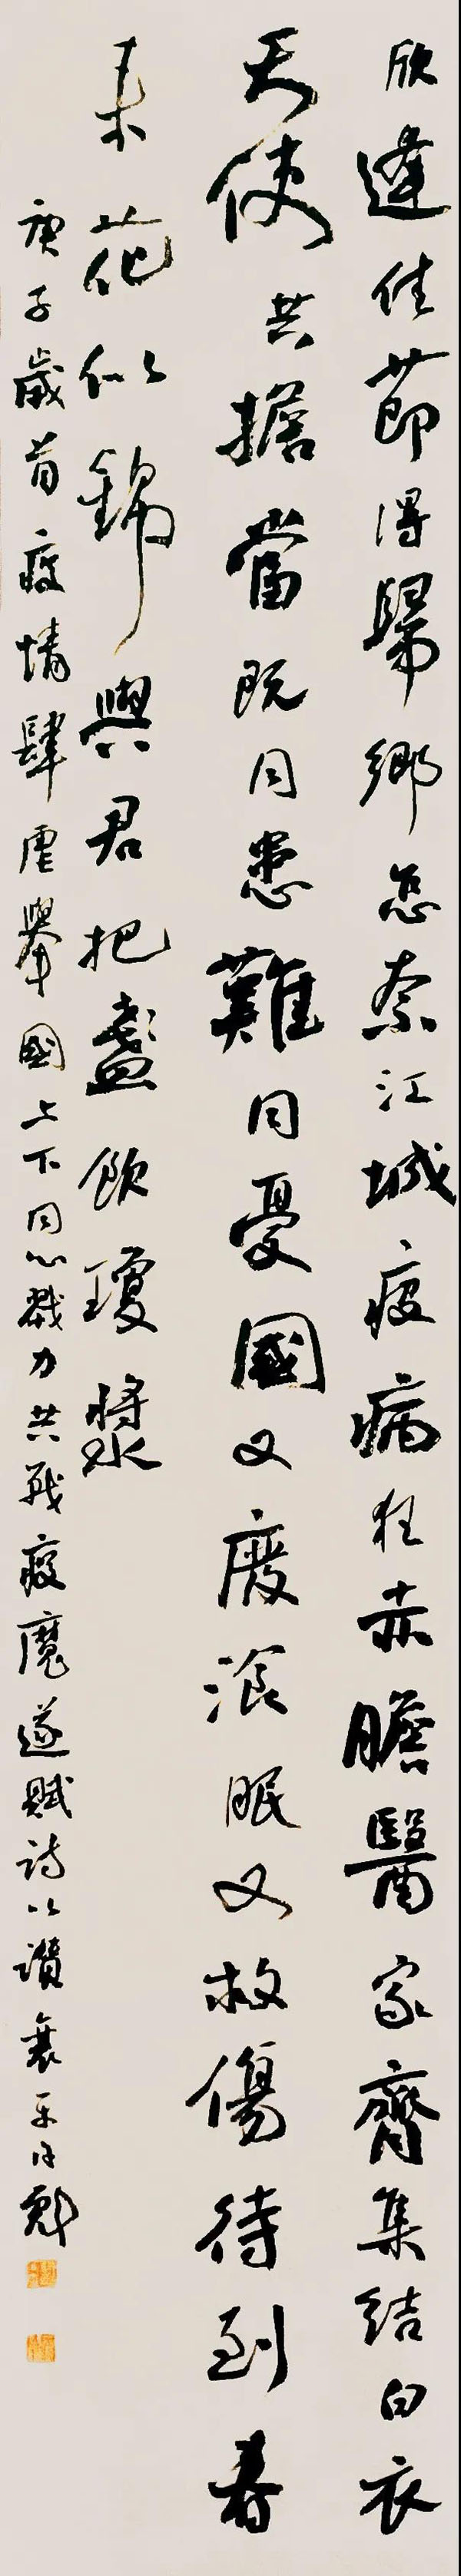 欣逢佳節得歸鄉怎奈江城疫病狂赤膽醫家齊集結白衣
天使共擔當既同患難同憂國又廢飡眠又救傷待到春
来花似錦與君把盞飲瓊漿
庚子歲首疫情肆虐舉國上下同心戮力共戰疫魔遂賦詩以讚襄平